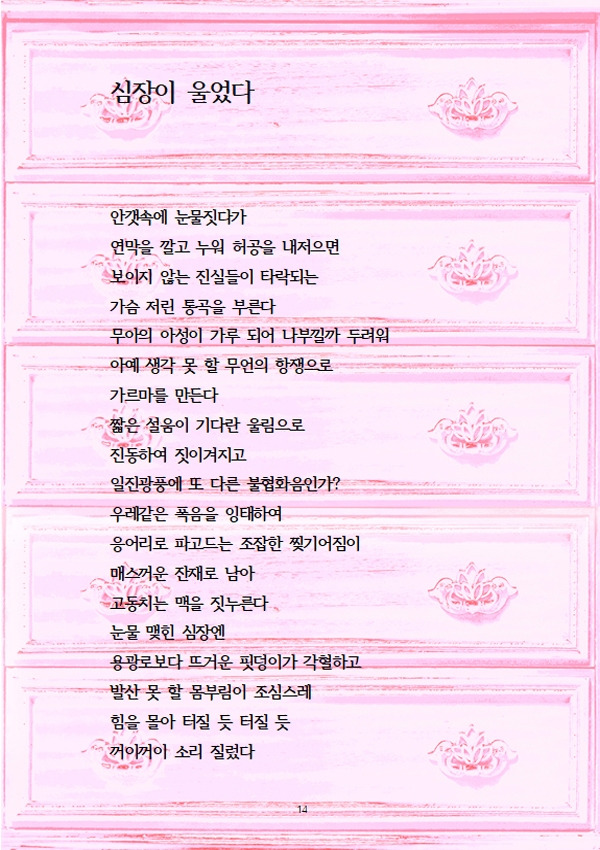 심장이 울었다
안갯속에 눈물짓다가
연막을 깔고 누워 허공을 내저으면
보이지 않는 진실들이 타락되는
가슴 저린 통곡을 부른다
무아의 아성이 가루 되어 나부낄까 두려워
아예 생각 못 할 무언의 항쟁으로
가르마를 만든다
짧은 설움이 기다란 울림으로
진동하여 짓이겨지고
일진광풍에 또 다른 불협화음인가?
우레같은 폭음을 잉태하여
응어리로 파고드는 조잡한 찢기어짐이
매스꺼운 잔재로 남아
고동치는 맥을 짓누른다
눈물 맺힌 심장엔
용광로보다 뜨거운 핏덩이가 각혈하고
발산 못 할 몸부림이 조심스레
힘을 몰아 터질 듯 터질 듯
꺼이꺼이 소리 질렀다
14